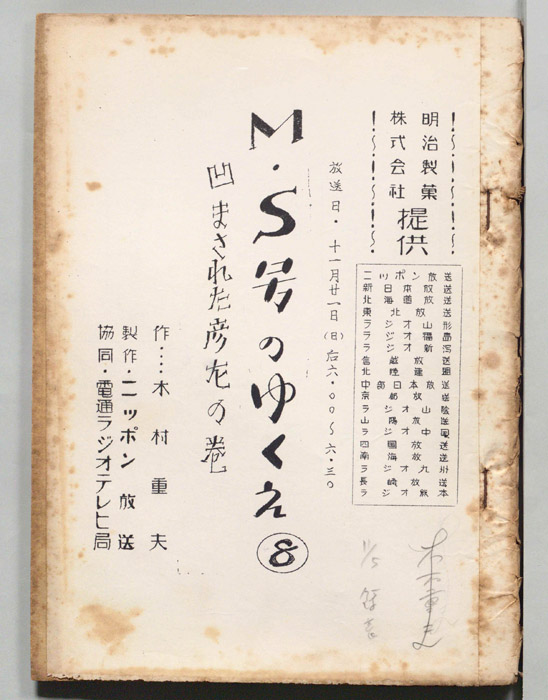 明治製菓
株式会社 提供
ニッポン放送
新日本放送
北海道放送
東北放送
ラジオ山形
ラジオ福島
ラジオ新潟
信越放送
北陸放送
中部日本放送
京都放送
ラジオ山陰
山陽放送
ラジオ中国
四国放送
南海放送
ラジオ九州
長崎放送
ラジオ熊本
放送日・十一月廿一日(日)后六・〇〇〜六・三〇
M・S号のゆくえ⑧
凹まされた彦左の巻
作‥‥木村重夫
製作・ニッポン放送
協同・電通ラジオテレビ局
木村重夫
11/5